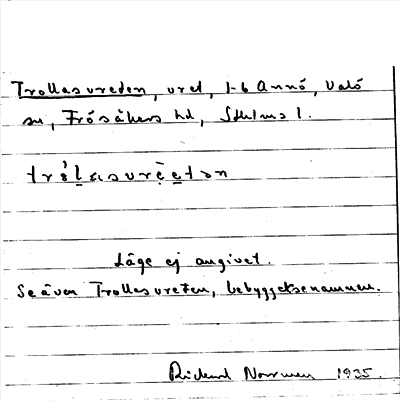 Trollasvreten, vret, 1-6 Annö, Valö
sn, Frösåkers hd, Sthlms l.
Läge ej angivet.
Se även Trollasvreten, bebyggelsenamnen.
Rickard Norrmen 1935.